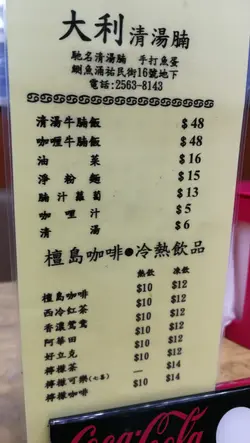 大利清湯腩
馳名清湯腩 手打魚蛋
鰂魚涌祐民街16號地下
電話:2563-8143
清湯牛腩飯 $48
咖喱牛腩飯 $48
油菜 $16
淨粉麵 $15
腩汁蘿蔔 $13
咖喱汁 $5
清湯 $6
檀島咖啡●冷熱飲品
熱飲 凍飲
檀島咖啡 $10 $12
西冷紅茶 $10 $12
香濃鴛鴦 $10 $12
阿華田 $10 $12
好立克 $10 $12
檸檬茶 $10 $12
檸檬可樂(七喜) — $14
檸檬咖啡 $12 $14
Coca-Cola